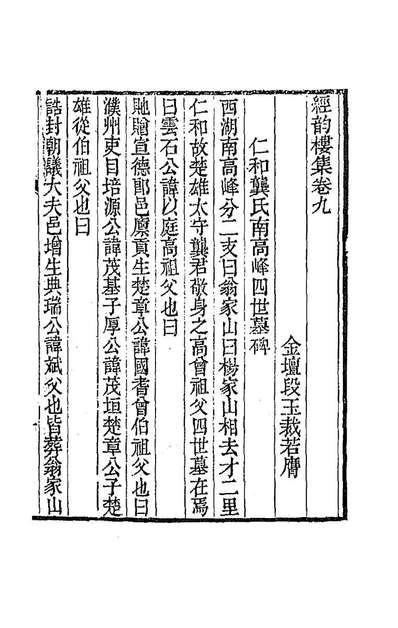 經韵樓集卷九
金壇段玉裁若膺
仁和龔氏南高峰四世墓碑
西湖南高峰分二支曰翁家山曰楊家山相去才二里
仁和故楚雄太守龔君敬身之高曾祖父四世墓在焉
曰雲石公諱以庭高祖父也曰
貤贈宣德郎邑廪貢生楚章公諱國耆曾伯祖父也曰
濮州吏目培源公諱茂基子厚公諱茂垣楚章公子楚
雄從伯祖父也曰
誥封朝議大夫邑增生典瑞公諱斌父也皆葬翁家山